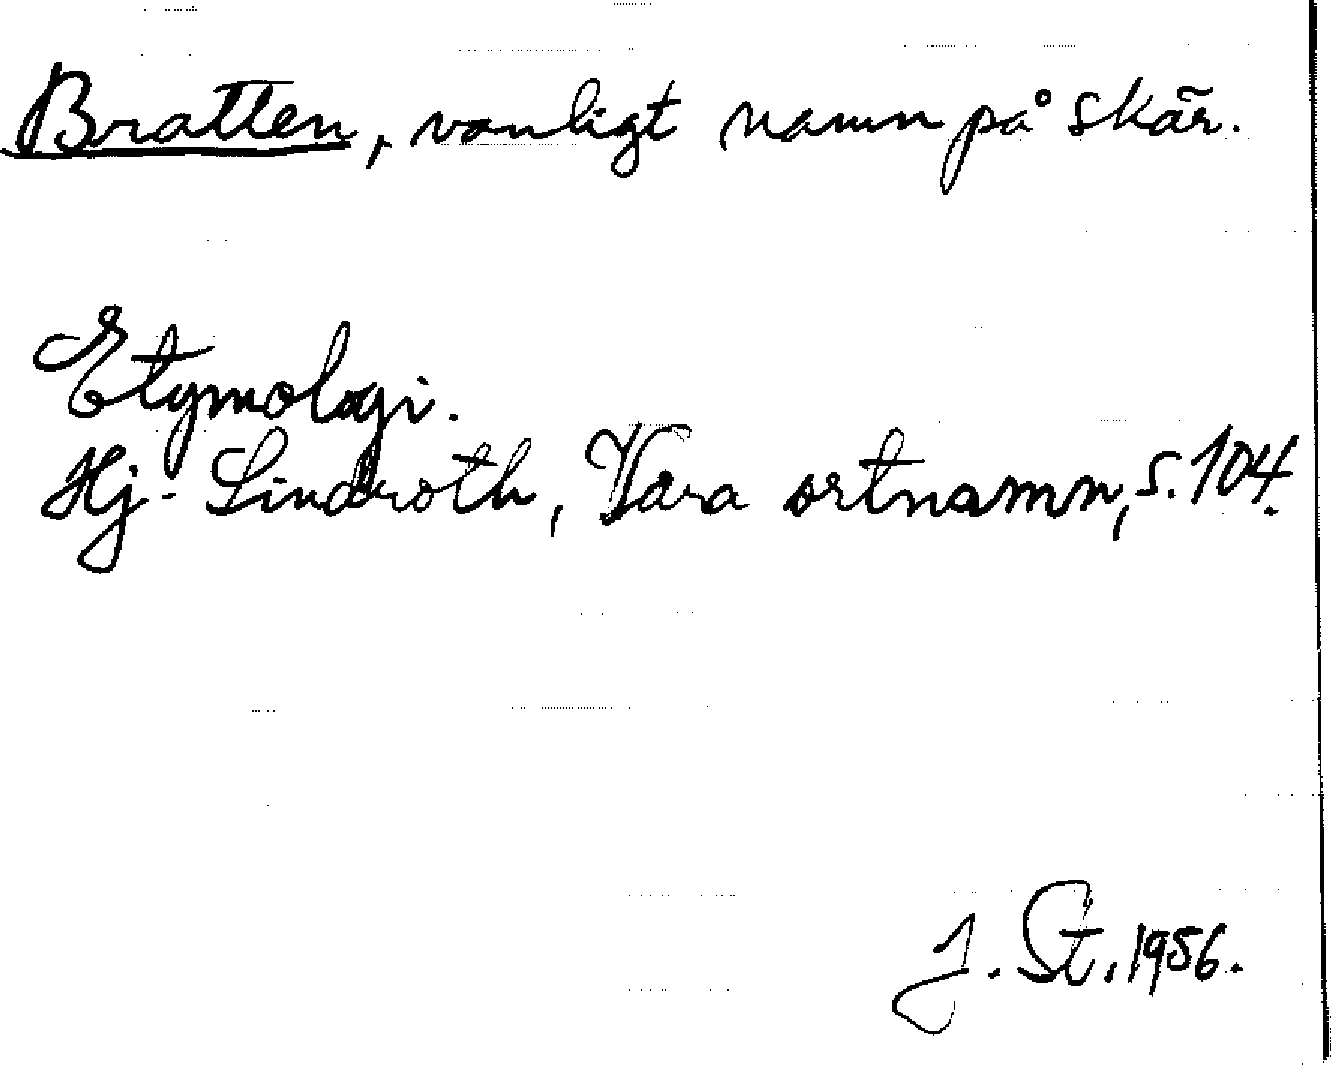 Bratten, vanligt namn på skär.
Etymologi.
Hj. Lindroth, Våra ortnamn, s. 104.
J. St. 1956.